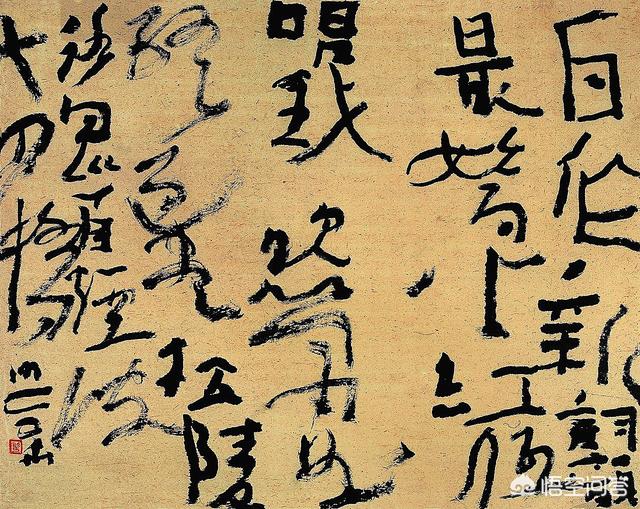 自作新詞韻
最嬌小紅低
唱我吹簫曲
終過盡松陵
路回首煙波
十四橋
悟空问答